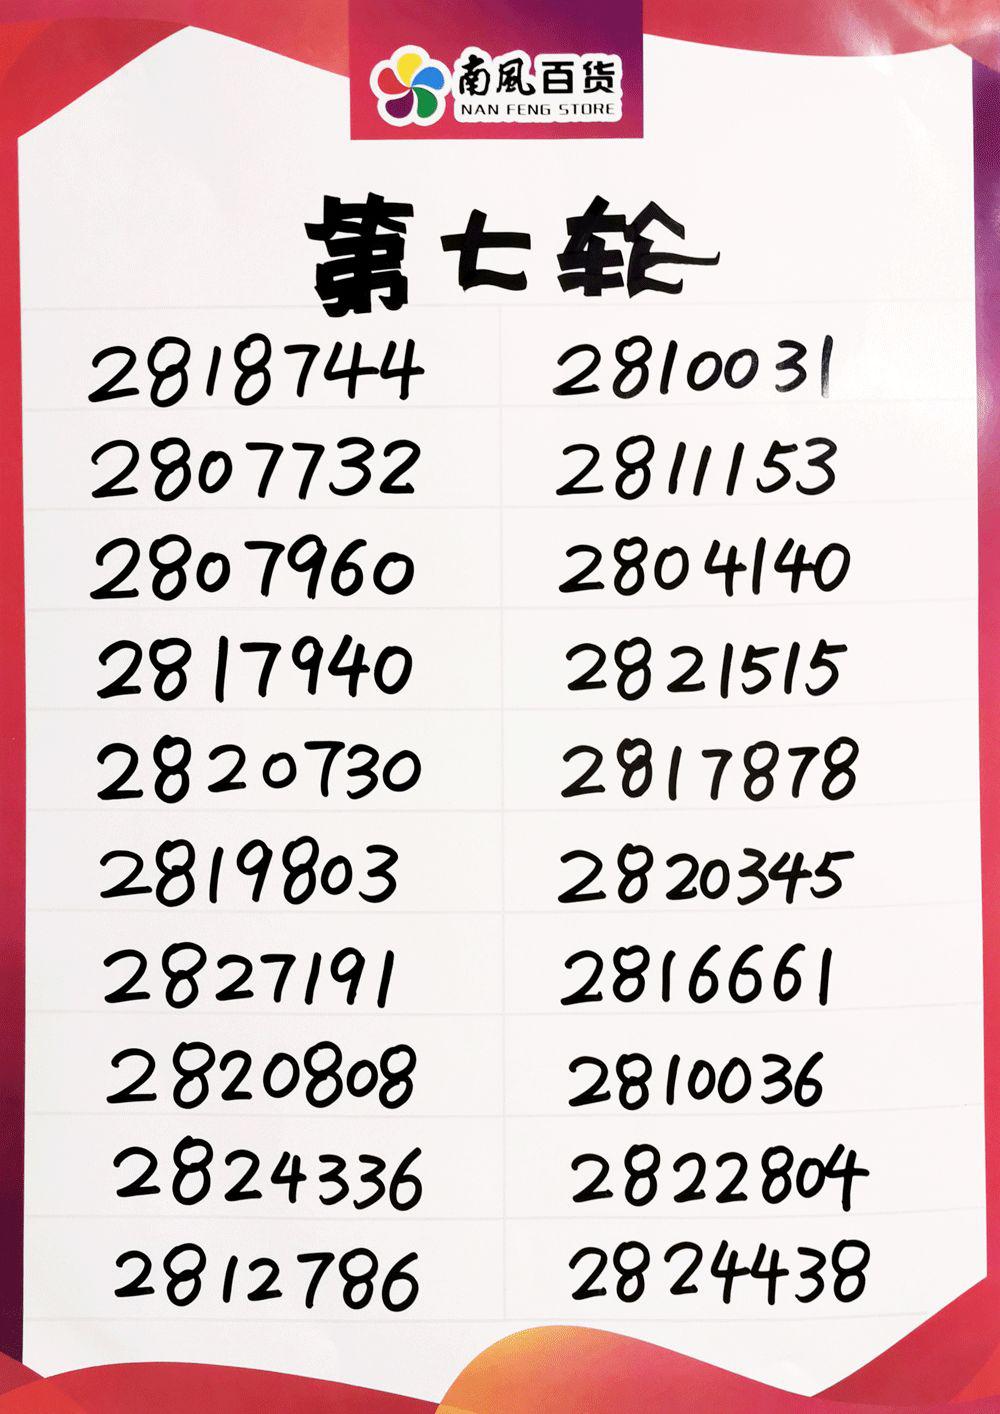 南風百货
NAN FENG STORE
第七轮
2818744 2810031
2807732 2811153
2807960 2804140
2817940 2821515
2820730 2817878
2819803 2820345
2827191 2816661
2820808 2810036
2824336 2822804
2812786 2824438